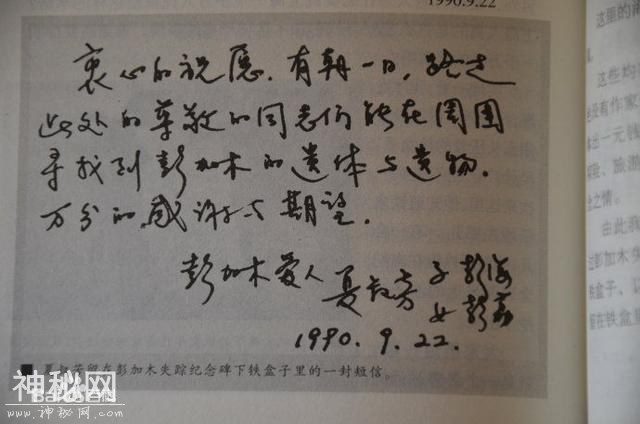 1990.9.22
衷心的祝愿.有朝一日,路走
此处的尊敬的同志们能在周围
寻找到彭加木的遗体与遗物.
万分的感谢与期望.
彭加木爱人 夏叔芳 子 彭海
女 彭荔
1990.9.22.
■ 夏叔芳留在彭加木失踪纪念碑下铁盒子里的一封短信。
这里的
这些
没有作家
出一元
险、旅游
之情。
由此
彭加木失
铁盒子、
在铁盒里
神秘网
www.神秘网.com